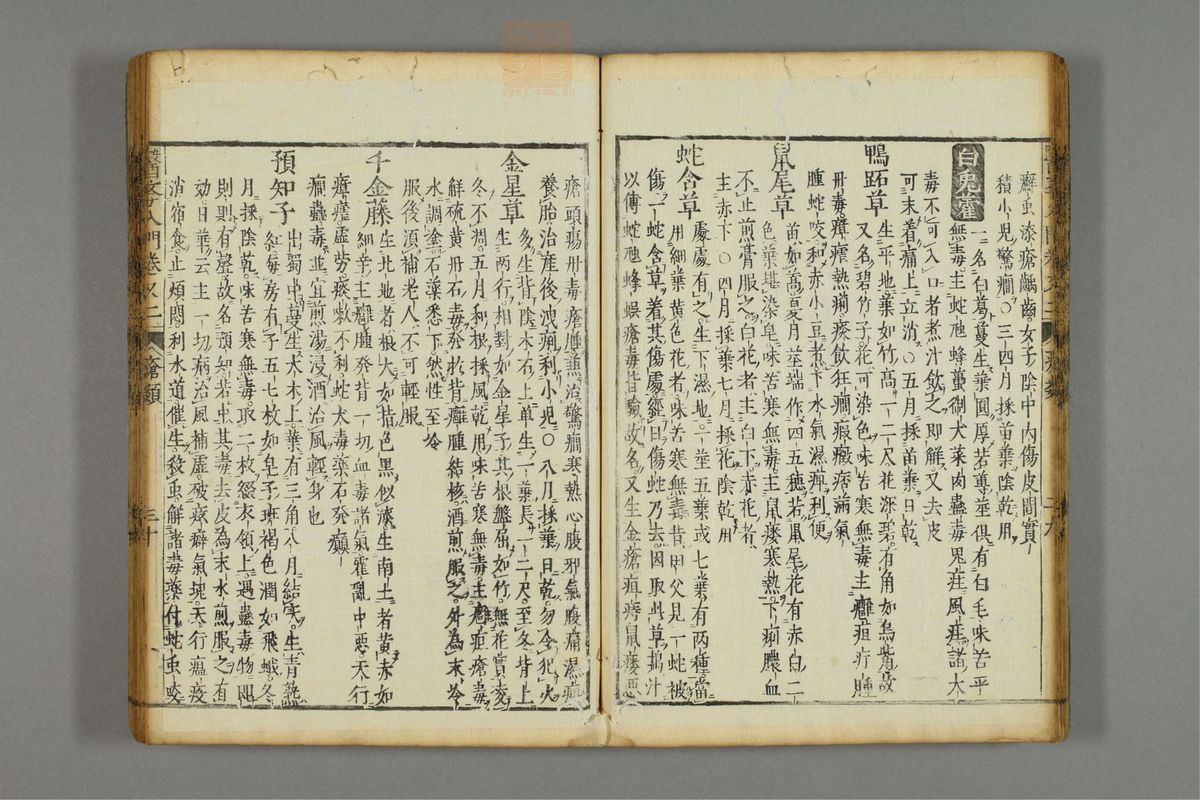 癬虫漆瘡齲齒女子陰中内傷皮間實
積小兒驚癇〇三四月採苗葉陰乾用
白兔藿
一名白葛蔓生葉圓厚若蓴莖俱有白毛味苦平
無毒主蛇虺蜂蠆猘犬菜肉蠱毒鬼疰風疰諸大
毒不可入口者煮汁飲之即解又去皮
可末着痛上立消〇五月採苗葉日乾
鴨跖草
生平地葉如竹高一二尺花深碧有角如鳥嘴故
又名碧竹子花可染色味苦寒無毒主癰疽疔腫
丹毒瘴瘧熱痢痰飲狂癇瘕癥痞滿氣
腫蛇咬和赤小豆煮下水氣濕痺利便
鼠尾草
苗如蒿夏月莖端作四五穂若鼠尾花有赤白二
色葉堪染皂味苦寒無毒主鼠瘻寒熱下痢膿血
不止煎膏服之白花者主白下赤花者
主赤下〇四月採葉七月採花陰乾用
蛇含草
處處有之生下濕地一莖五葉或七葉有兩種當
用細葉黄色花者味苦寒無毒昔田父見一蛇被
傷一蛇含草着其傷處經日傷蛇乃去因取此草搗汁
以傅蛇虺蜂蜈瘡毒皆驗故名又生金瘡疽痔鼠瘻惡
瘡頭瘍丹毒瘡腫兼治驚癇寒熱心腹邪氣腹痛濕痺
養胎治産後洩痢利小兒〇八月採葉日乾勿令犯火
金星草
多生背陰木石上單生一葉長一二尺至冬背上
生兩行相對如金星子其根盤屈如竹無花實凌
冬不凋五月和根採風乾用味苦寒無毒主癰疽瘡毒
解硫黄丹石毒発於背癰腫結核酒煎服之外為末冷
水調塗石藥悉下然性至冷
服後須補老人不可輕服
千金藤
生北地者根大如指色黒似漆生南土者黄赤如
細辛主癰腫発背一切血毒諸氣霍亂中悪天行
瘴瘧虚労痰嗽不利蛇犬毒藥石発癲
癇蠱毒並宜煎湯浸酒治風輕身也
預知子
出蜀中蔓生大木上葉有三角八月結実生青熟
紅每房有子五七枚如皂子班褐色潤如飛蛾冬
月採陰乾味苦寒無毒取二枚綴衣領上遇蠱毒物
則有聲故名預知若中其毒去皮為末水煎服之有
効日華云主一切病治風補虚破痃癖氣塊天行瘟疫
消宿食止煩悶利水道催生殺虫解諸毒藥付蛇虫咬
醫学入門卷又二
瘡類
三十